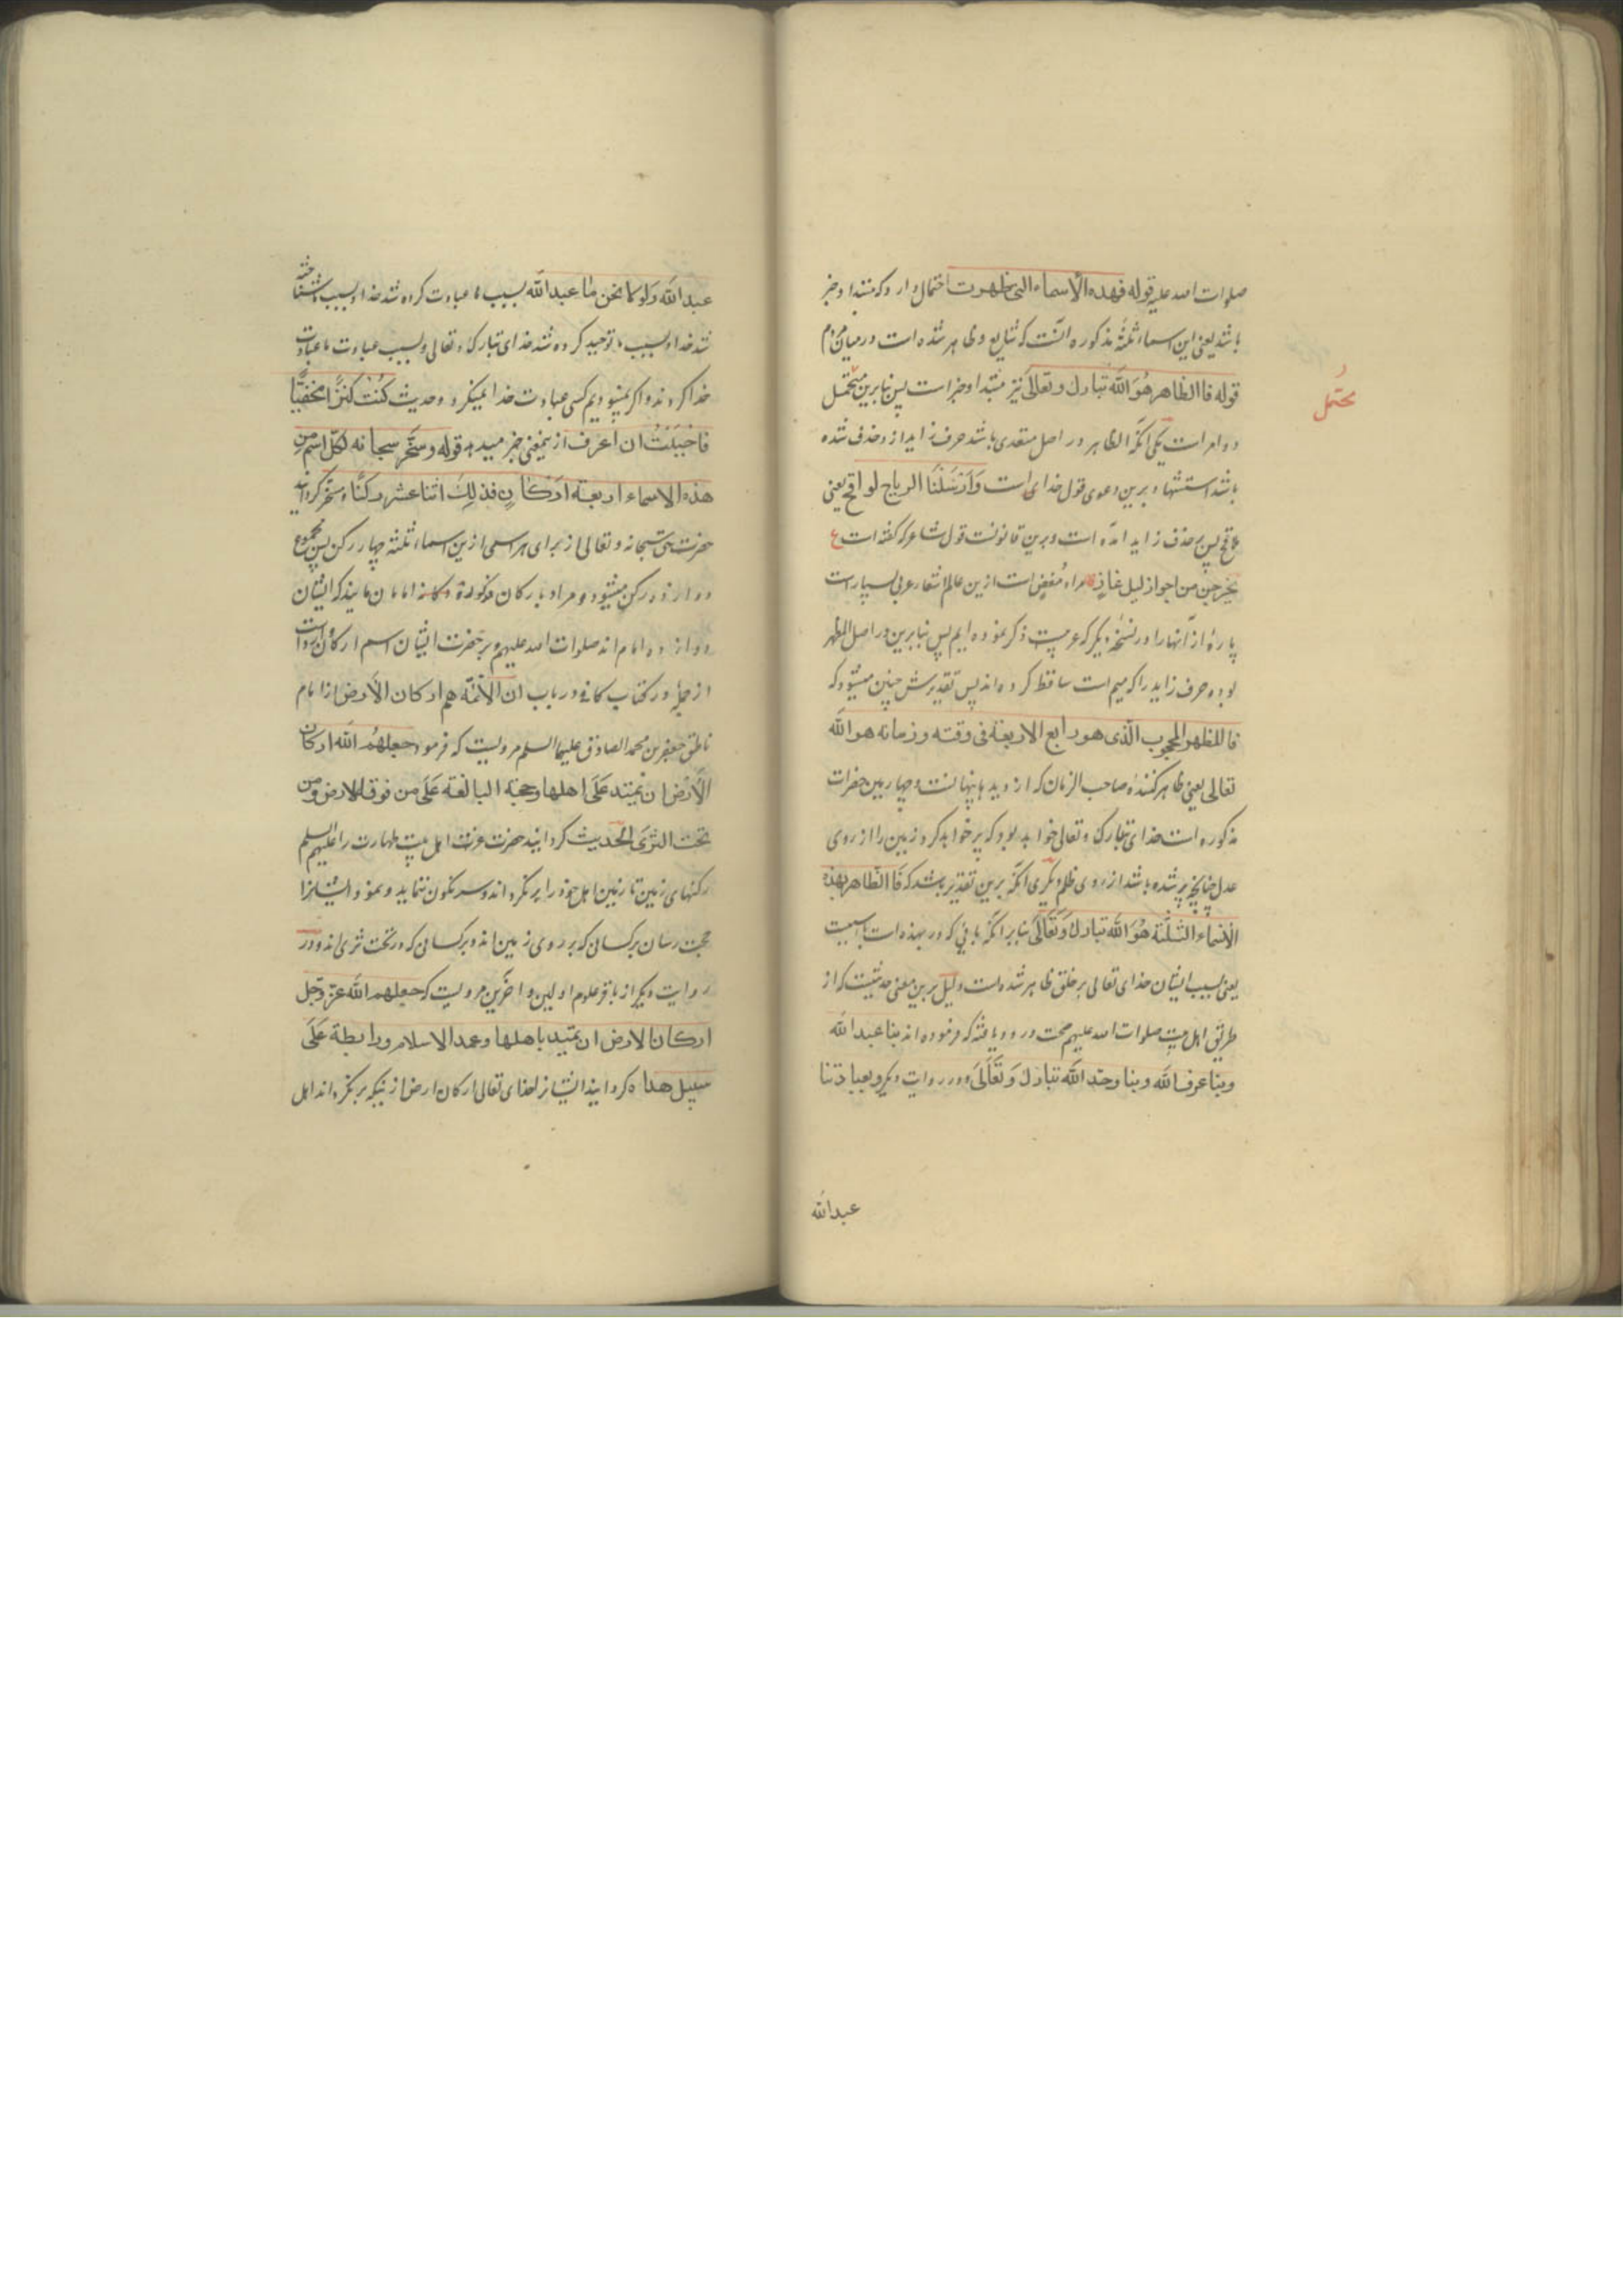 صلوات الله علیه قوله فهذه الأسماء التی ظهرت احتمال دارد که مبتدا و خبر
باشد یعنی این اسماء ثلثهٔ مذکوره آنست که شایع و ظاهر شده است در میان مردم
قوله فاالظاهر هُوَ اللّه تبارك وتعالیَ نیز مبتدا و خبر است پس بنابرین محتمل
دو امر است یکی آنکه الظاهر در اصل متعدی باشد حرف زاید ازو حذف شده
باشد استشهاد برین دعوی قول خدای است وَاَرْسَلْنَا الریاح لواقح یعنی
ملاقح پس بر حذف زاید آمده است و برین قانونست قول شاعر که گفته است ع
یخرجن من اجواز لیل غاضٍ مراد مُغضٍ است ازین عالم اشعار عربی بسیار است
پارهٔ از آنها را در نسخهٔ دیگر که عربیست ذکر نموده ایم پس بنابرین در اصل المظهر
بوده حرف زاید را که میم است ساقط کرده اند پس تقدیرش چنین میشود که
فاالمظهر المحجوب الّذی هو رابع الاربعة فی وقته وزمانه هو اللّه
تعالی یعنی ظاهر کنندهٔ صاحب الزمان که از دیدها پنهانست و چهارمین حضرات
مذکوره است خدای تبارك و تعالی خواهد بود که پر خواهد کرد زمین را از روی
عدل چنانچه پر شده باشد از روی ظلم دیگری آنکه برین تقدیر باشد که فَاالظاهر بهذه
الأسماء الثلثة هُوَ اللّه تبارك وَتَعَالَیَ بنابر آنکه بائی که در بهذه است باسببیت
یعنی بسبب ایشان خدای تعالی بر خلق ظاهر شده است دلیل برین معنی حدیثیست که از
طریق اهل بیت صلوات الله علیهم صحت ورود یافته که فرموده اند بنا عبد اللّه
وبنا عرف اللّه وبنا وحد اللّه تبارك وَتَعَالَیَ و در روایت دیگر و بعبادتنا
عبد اللّه
محتمل
عبد اللّه وَلَولا نحن ما عبد اللّه بسبب ما عبادت کرده شد خدا و بسبب ما شناخته
شد خدا و بسبب ما توحید کرده شد خدای تبارك و تعالی و بسبب عبادت ما عبادت
خدا کردند و اگر نمیبودیم کسی عبادت خدا نمیکرد و حدیث كُنْتُ كنزًا مخفیًّا
فاحْبَبْتُ ان اعرف ازینمعنی خبر میدهد قوله وسخّر سبحانه لكلّ اسم من
هذه الاسماء اربعة اَرْكانٍ فذلِكَ اثناعشر ركنًا و مسخر گردانید
حضرت حق سبحانه و تعالی از برای هر اسمی ازین اسماء ثلثه چهار رکن پس مجموع
دوازده رکن میشود و مراد بارکان مذکوره امامان مایند که ایشان
دوازده امام اند صلوات الله علیهم و بر حضرت ایشان اسم ارکان رواست
از جمله در کتاب کافی در باب ان الأئمّة هم ارکان الأرض از امام
ناطق جعفر بن محمد الصادق علیهما السلم مرویست که فرمود جعلهُم اللّه ارکان
الأرْضِ ان تمید عَلَی اهلها وحجته البالغة عَلَی من فوق الارض ومن
تحت الثری الحدیث گردانید حضرت عزت اهل بیت طهارت را علیهم السلم
رکنهای زمین تا زمین اهل خود را بر نگرداند و سرنگون ننماید و نمود ایشانرا
حجت رسان بر کسانی که بر روی زمین اند و بر کسانی که در تحت ثری اند و در
روایت دیگر از باقر علوم اولین و آخرین مرویست که جعلهم اللّه عزّ وجّل
ارکان الارض ان تمید باهلها وعمد الاسلام ورابطة عَلَی
سبیل هداه گردانید ایشانرا خدای تعالی ارکان ارض از اینکه بر نگرداند اهل